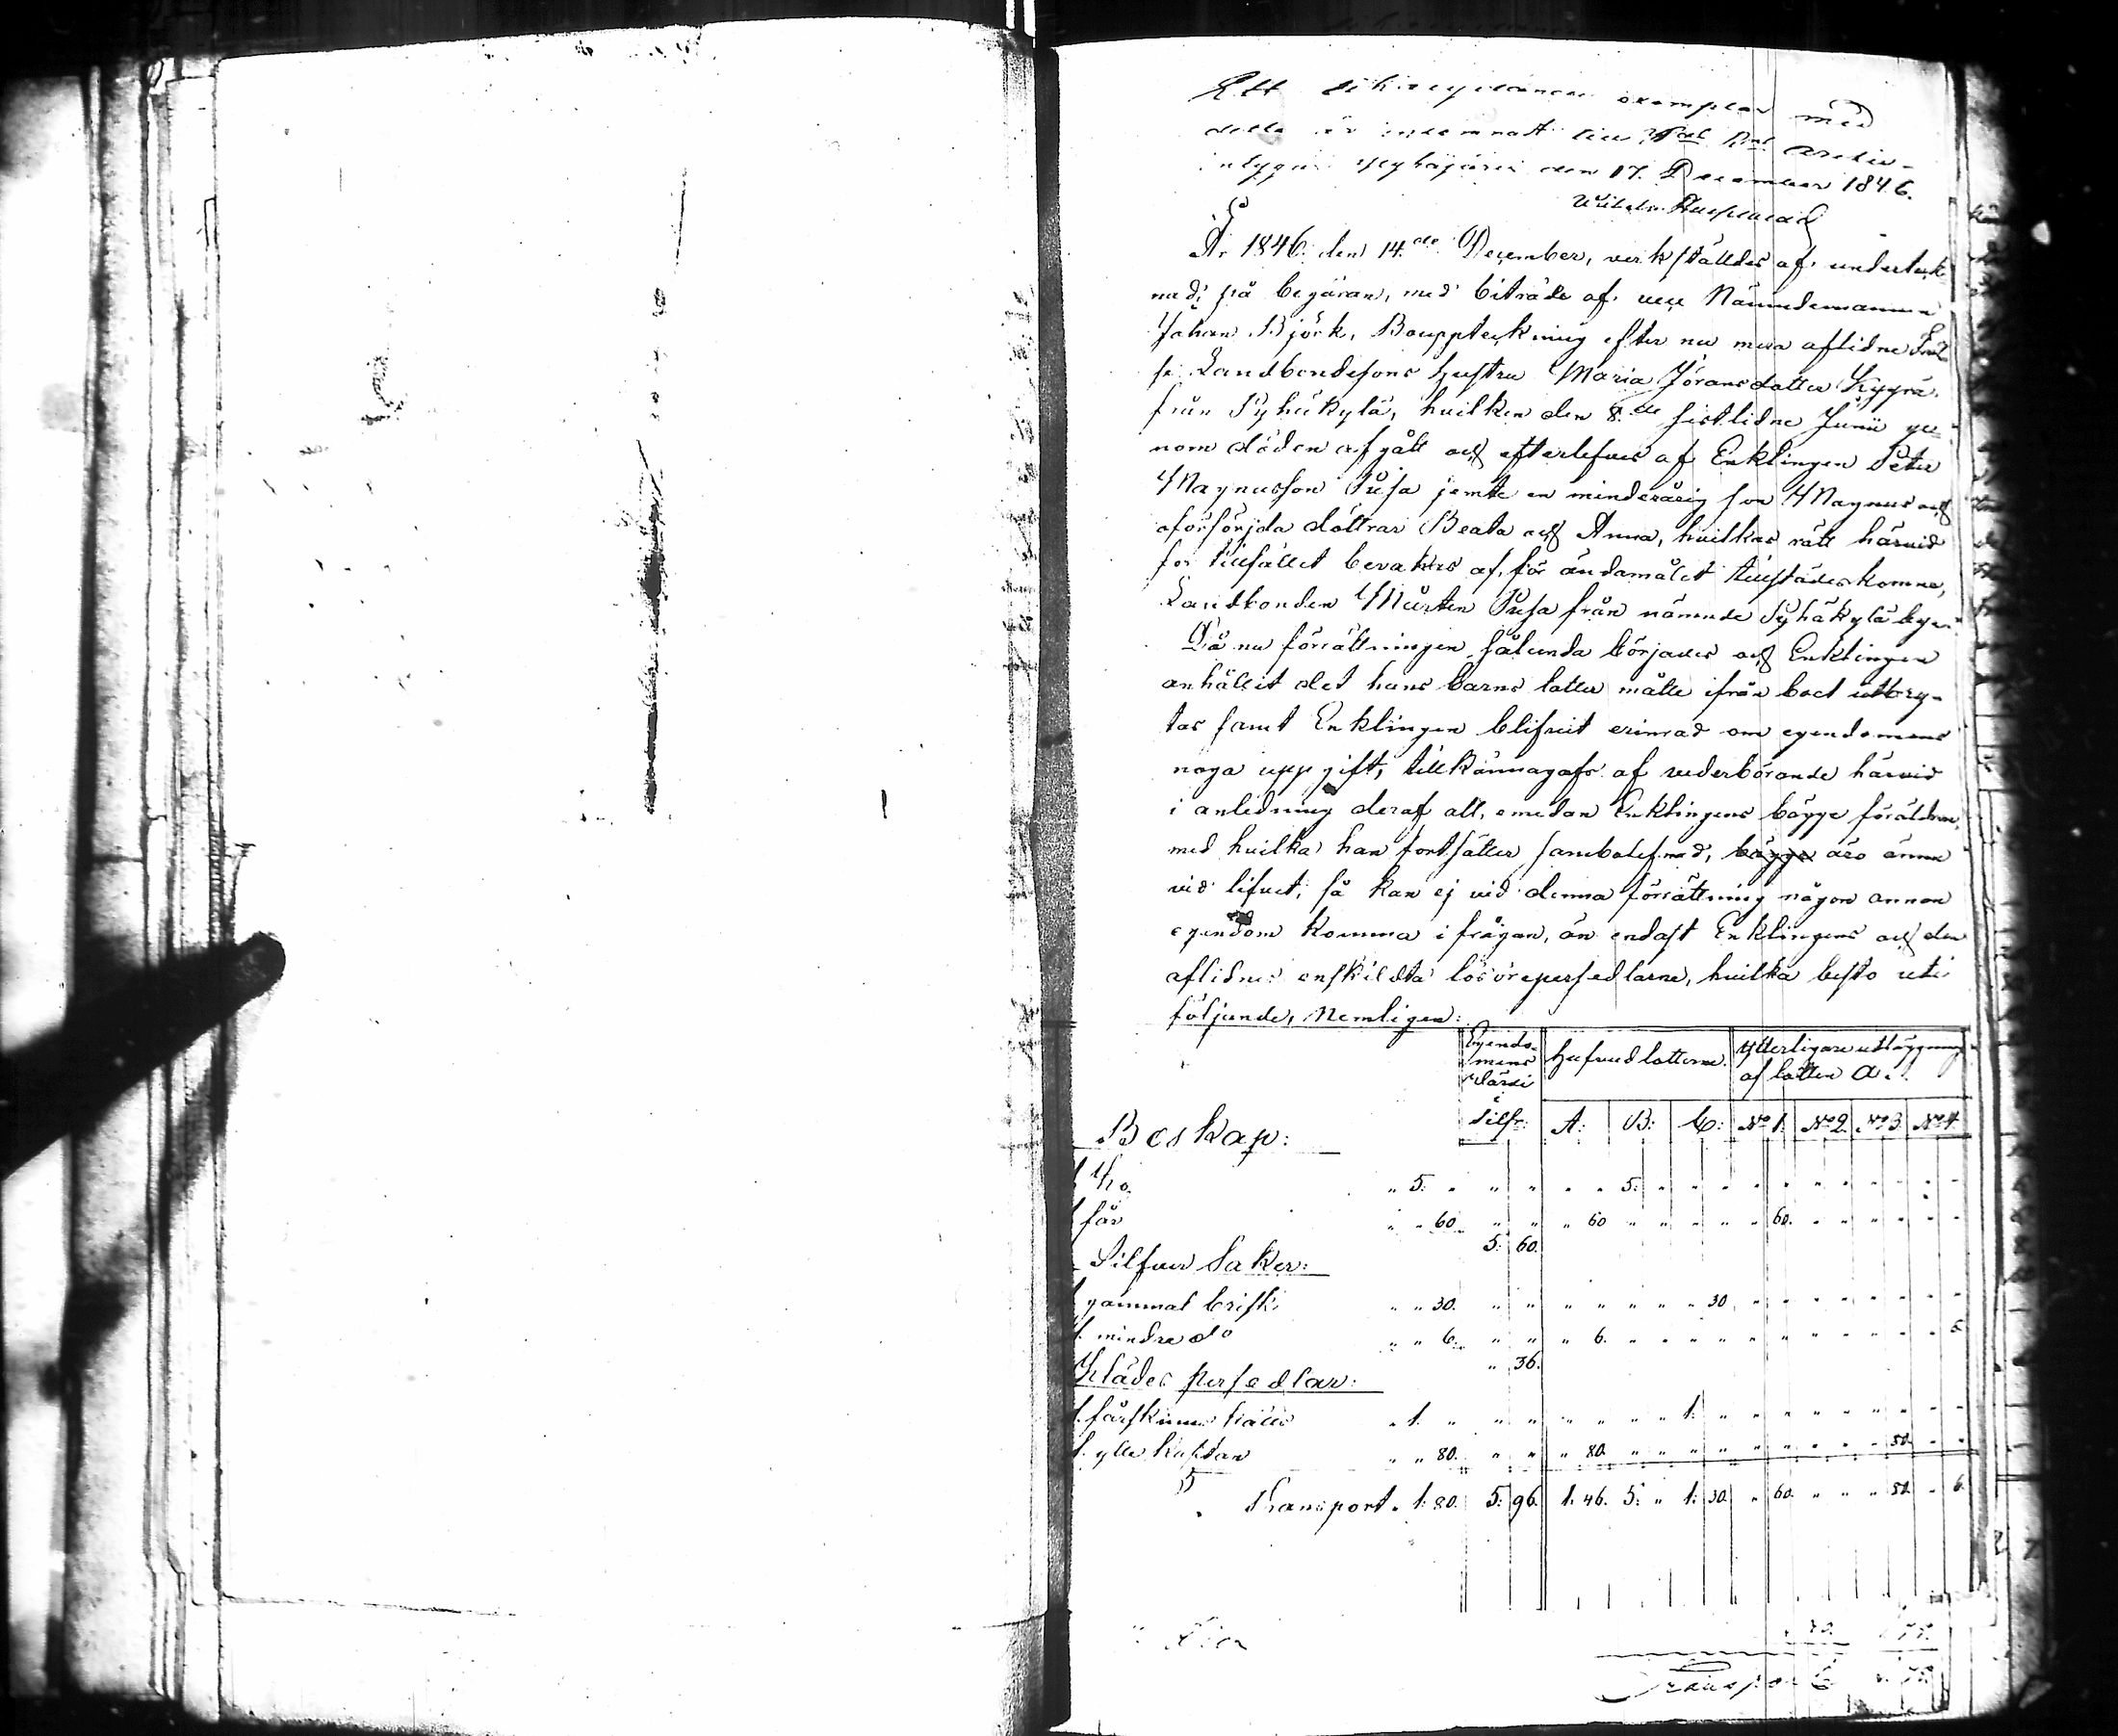 Ett exemplar med
detta är inlemnat till arkiv
intygar Pyhäjärvi den 17. December 1846.
År 1846 den 14.de December, verkställdes af undertek-
nad, på begäran, med biträde af Nämndemannen
Johan Björk, Bouppteckning efter nu mera aflidne
Landbondesons hustru Maria Jöransdotter
från Pyhäkylä, hvilken den 8.de sistlidne Junii ge-
nom döden afgått och efterlefves af Enklingen Peter
Magnusson Pusa jemte en minderårig son Magnus och
oförsörjda döttrar Beata och Anna, hvilkas rätt härvid
för tillfället bevakes af, för ändamålet tillstädeskomne,
Landbonden Mårten Pusa från nämnde Pyhäkylä by.
Då nu förrättningen sålunda börjades och Enklingen
anhållit det hans barns lotter måtte ifrån boet utbry-
tas samt Enklingen blifvit erinrad om egendomens
noga uppgift, tillkännagafs af vederbörande härvid
i anledning deraf att, emedan Enklingens bägge föräldrar,
med hvilka han fortsätter sambolefnad, bägge äro ännu
vid lifvet, så kan ej vid denna förrättning någon annan
egendom komma i frågan, än endast Enklingens och den
aflidnes enskildta lösörepersedlarne, hvilka bestå uti
följande, Nemligen:
Egendo-
mens
värde i Silfr: Hufvudlotterne. Ytterligare utläggning
af lotten A.
Boskap: A: B: C: No 1. No 2. No 3. No 4.
1 Ko " 5. " " " " " 5. " " " " " " " " " "
1 får " " 60. " " " 60 " " " " " 60. " " " " " "
5. 60.
Silfver Saker:
1 gammal brisk " " 30. " " " " " " " 30. " " " " " " " "
1. mindre do " " 6. " " " 6. " " " " " " " " " " " 6.
" 36.
Klädes persedlar:
1. fårskinns " 1. " " " " " " " 1. " " " " " " " " "
1. ylle kaftan " " 80. " " " 80. " " " " " " " " " 80. " "
Transport " 1. 80. 5. 96. 1. 46. 5. " 1. 30. " 60. " " " 80. " 6.
Transport